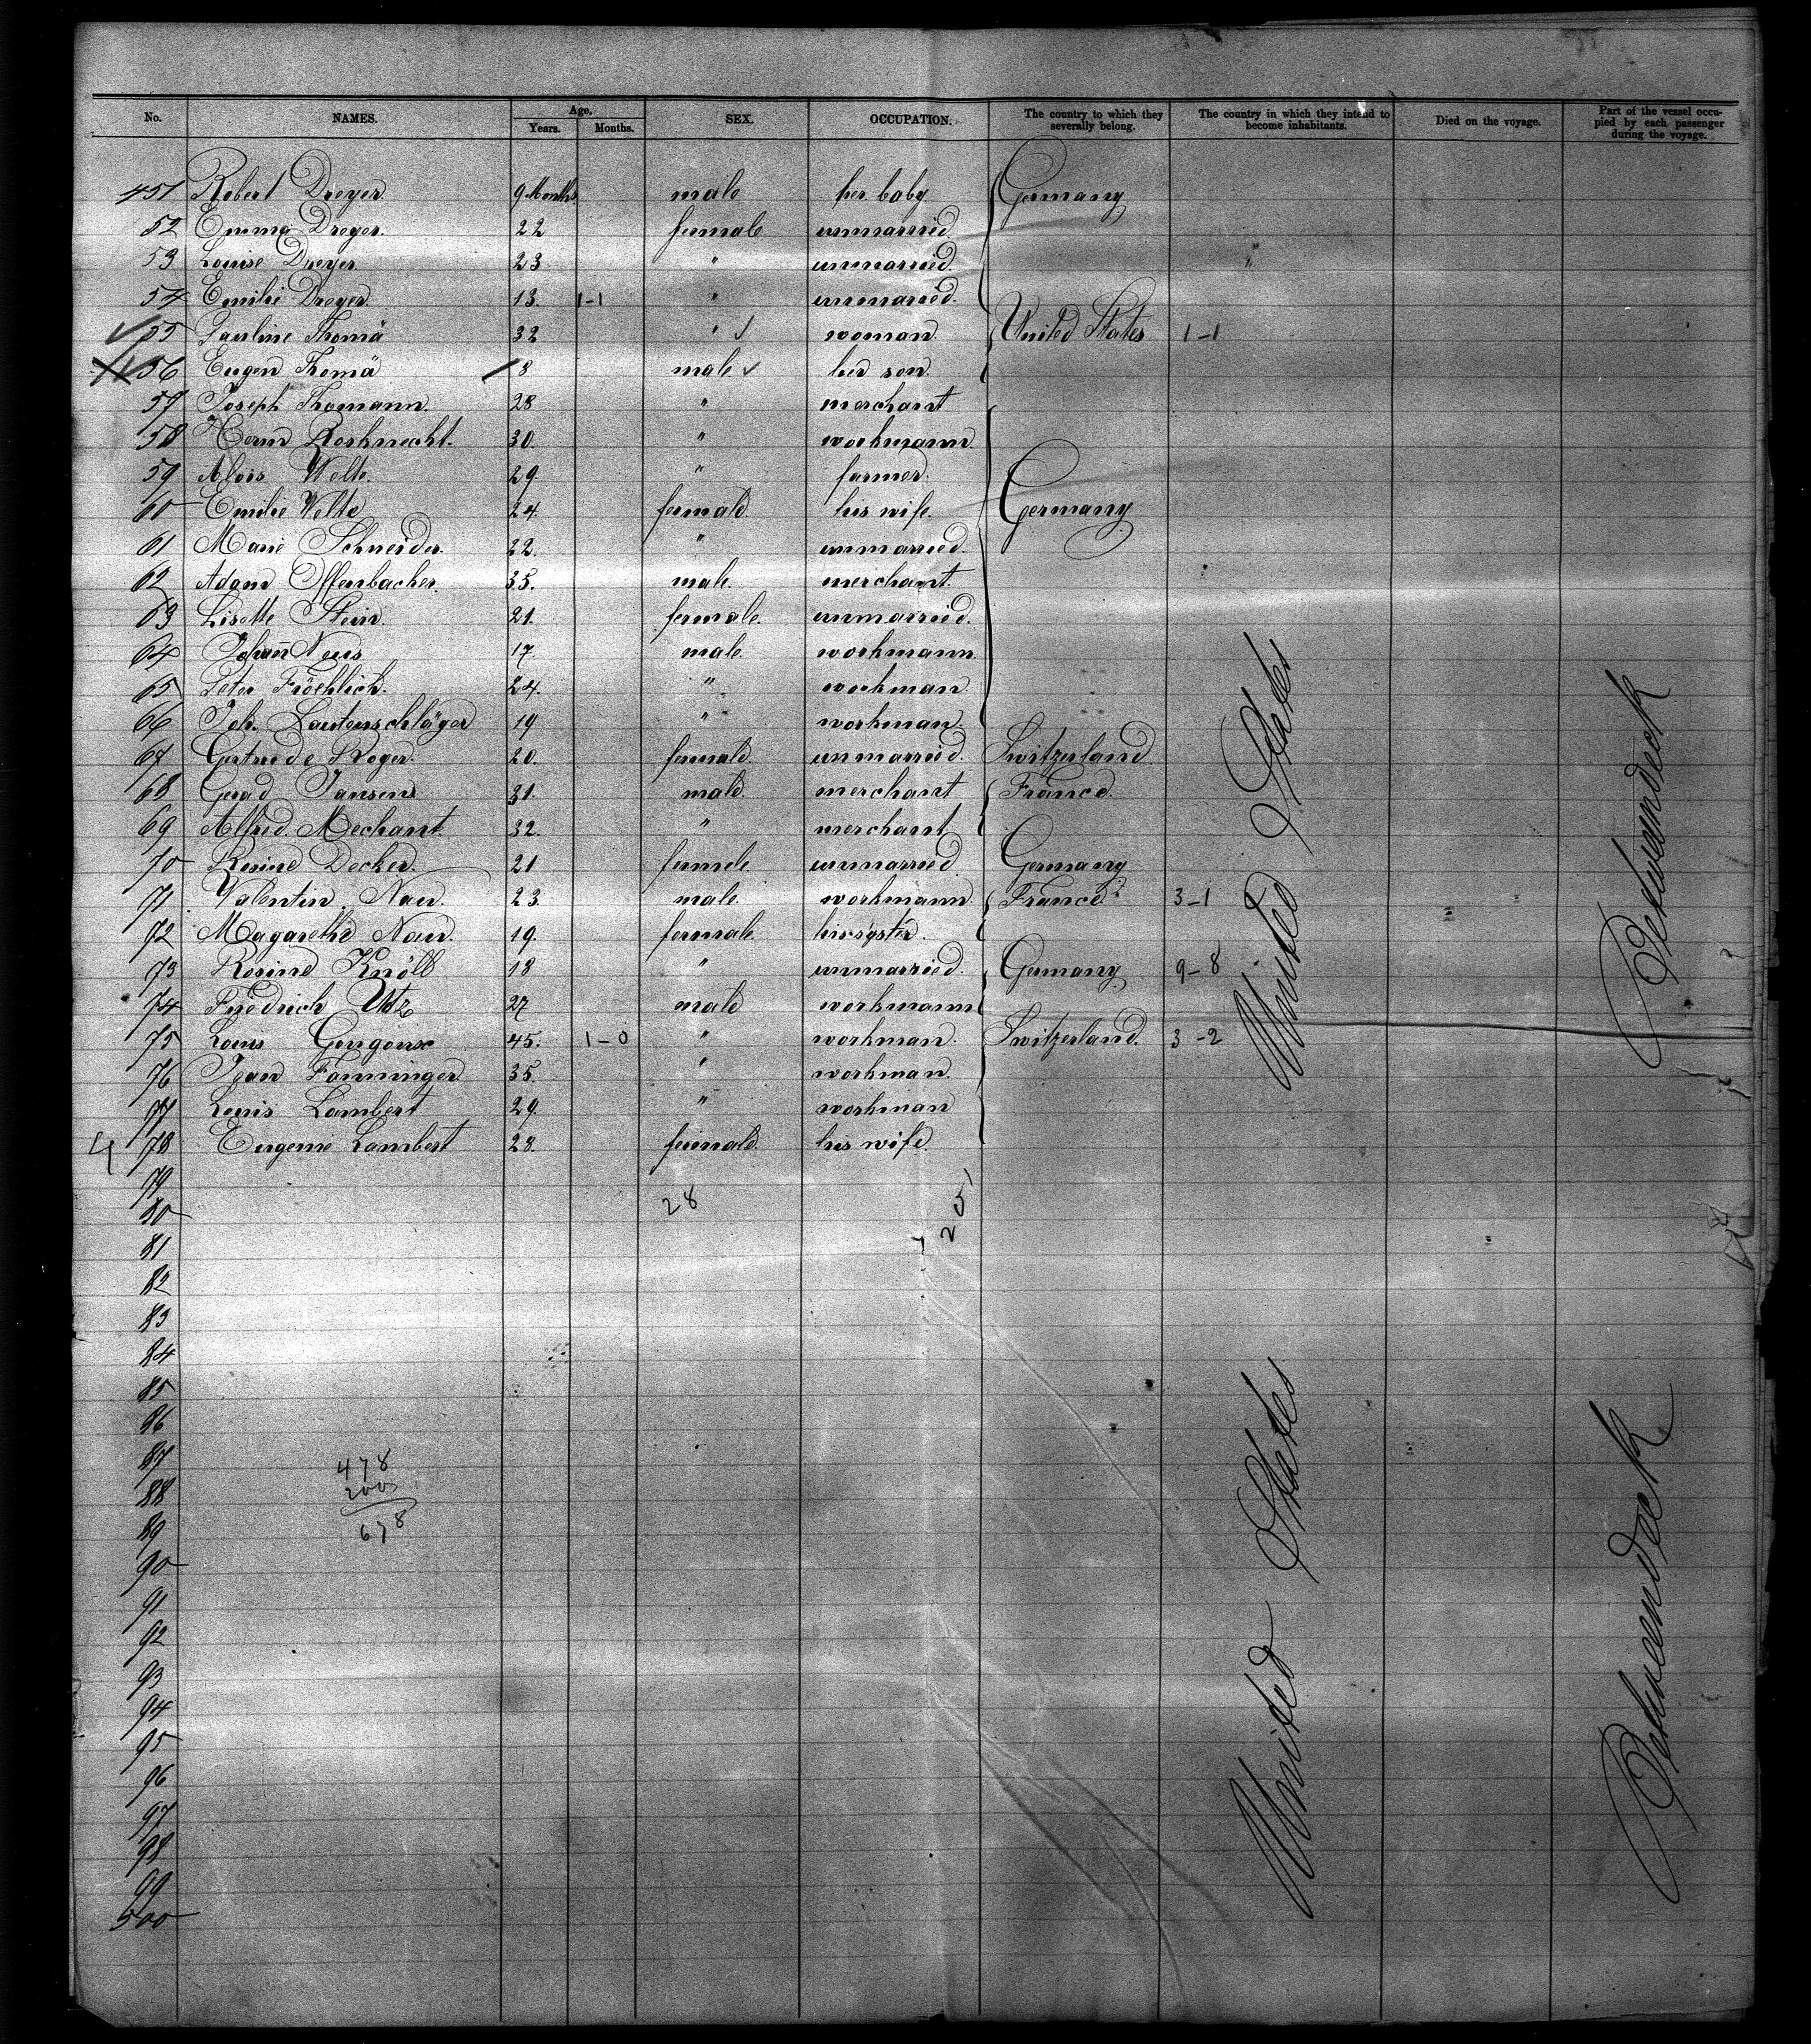 No. NAMES. Age. Years. Months. SEX. OCCUPATION. The country to which they severally belong. The country in which they intend to become inhabitants. Died on the voyage. Part of the vessel occupied by each passenger during the voyage.
451 Robert Dreyer. 9 Months male her baby. Germany
52 Emma Dreyer. 22 female unmarried.
53 Louise Dreyer. 23 " unmarried. "
54 Emilie Dreyer 13. 1-1 " unmarried.
55 Pauline Thomä 32 " woman. United States 1-1
56 Eugen Thomä 8 male her son.
57 Joseph Thomann. 28 " merchant
58 Herm 30. " workmann.
59 Alois Welte. 29. " farmer.
60 Emilie Welte 24. female. his wife. Germany
61 Marie Schneider. 22. " unmarried.
62 Adam Offenbacher. 35. male. merchant.
63 Lisette Stein. 21. female. unmarried.
64 Johann Neus 17. male. workmann.
65 Peter Fröehlich. 24. " workman.
66 Joh. Lautenschläger 19 " workman.
67 Gertrude Roger. 20. female. unmarried. Switzerland
68 Gerad Jansens 31. male. merchant France.
69 Alfred Mechant. 32. " merchant
70 Rosine Decker. 21 female unmarried Germany
71 Valentin Nau. 23. male. workmann. France 3-1
72 Magarethe Nau. 19. female. his syster.
73 Rosine Knöll 18 " unmarried. Germany. 9-8
74 Friedrich Utz 27 male workmann
75 Louis 45. 1-0 " workman. Switzerland. 3-2
76 Jean Fanninger 35. " workman.
77 Louis Lambert 29. " workman
4 78 Eugenie Lambert 28. female. his wife.
79
80 28
81
82
83
84
85
86
87 478
88 200
89 678
90
91
92
93
94
95
96
97
98
99
500
United States
United States
Zwischendeck
Zwischendeck